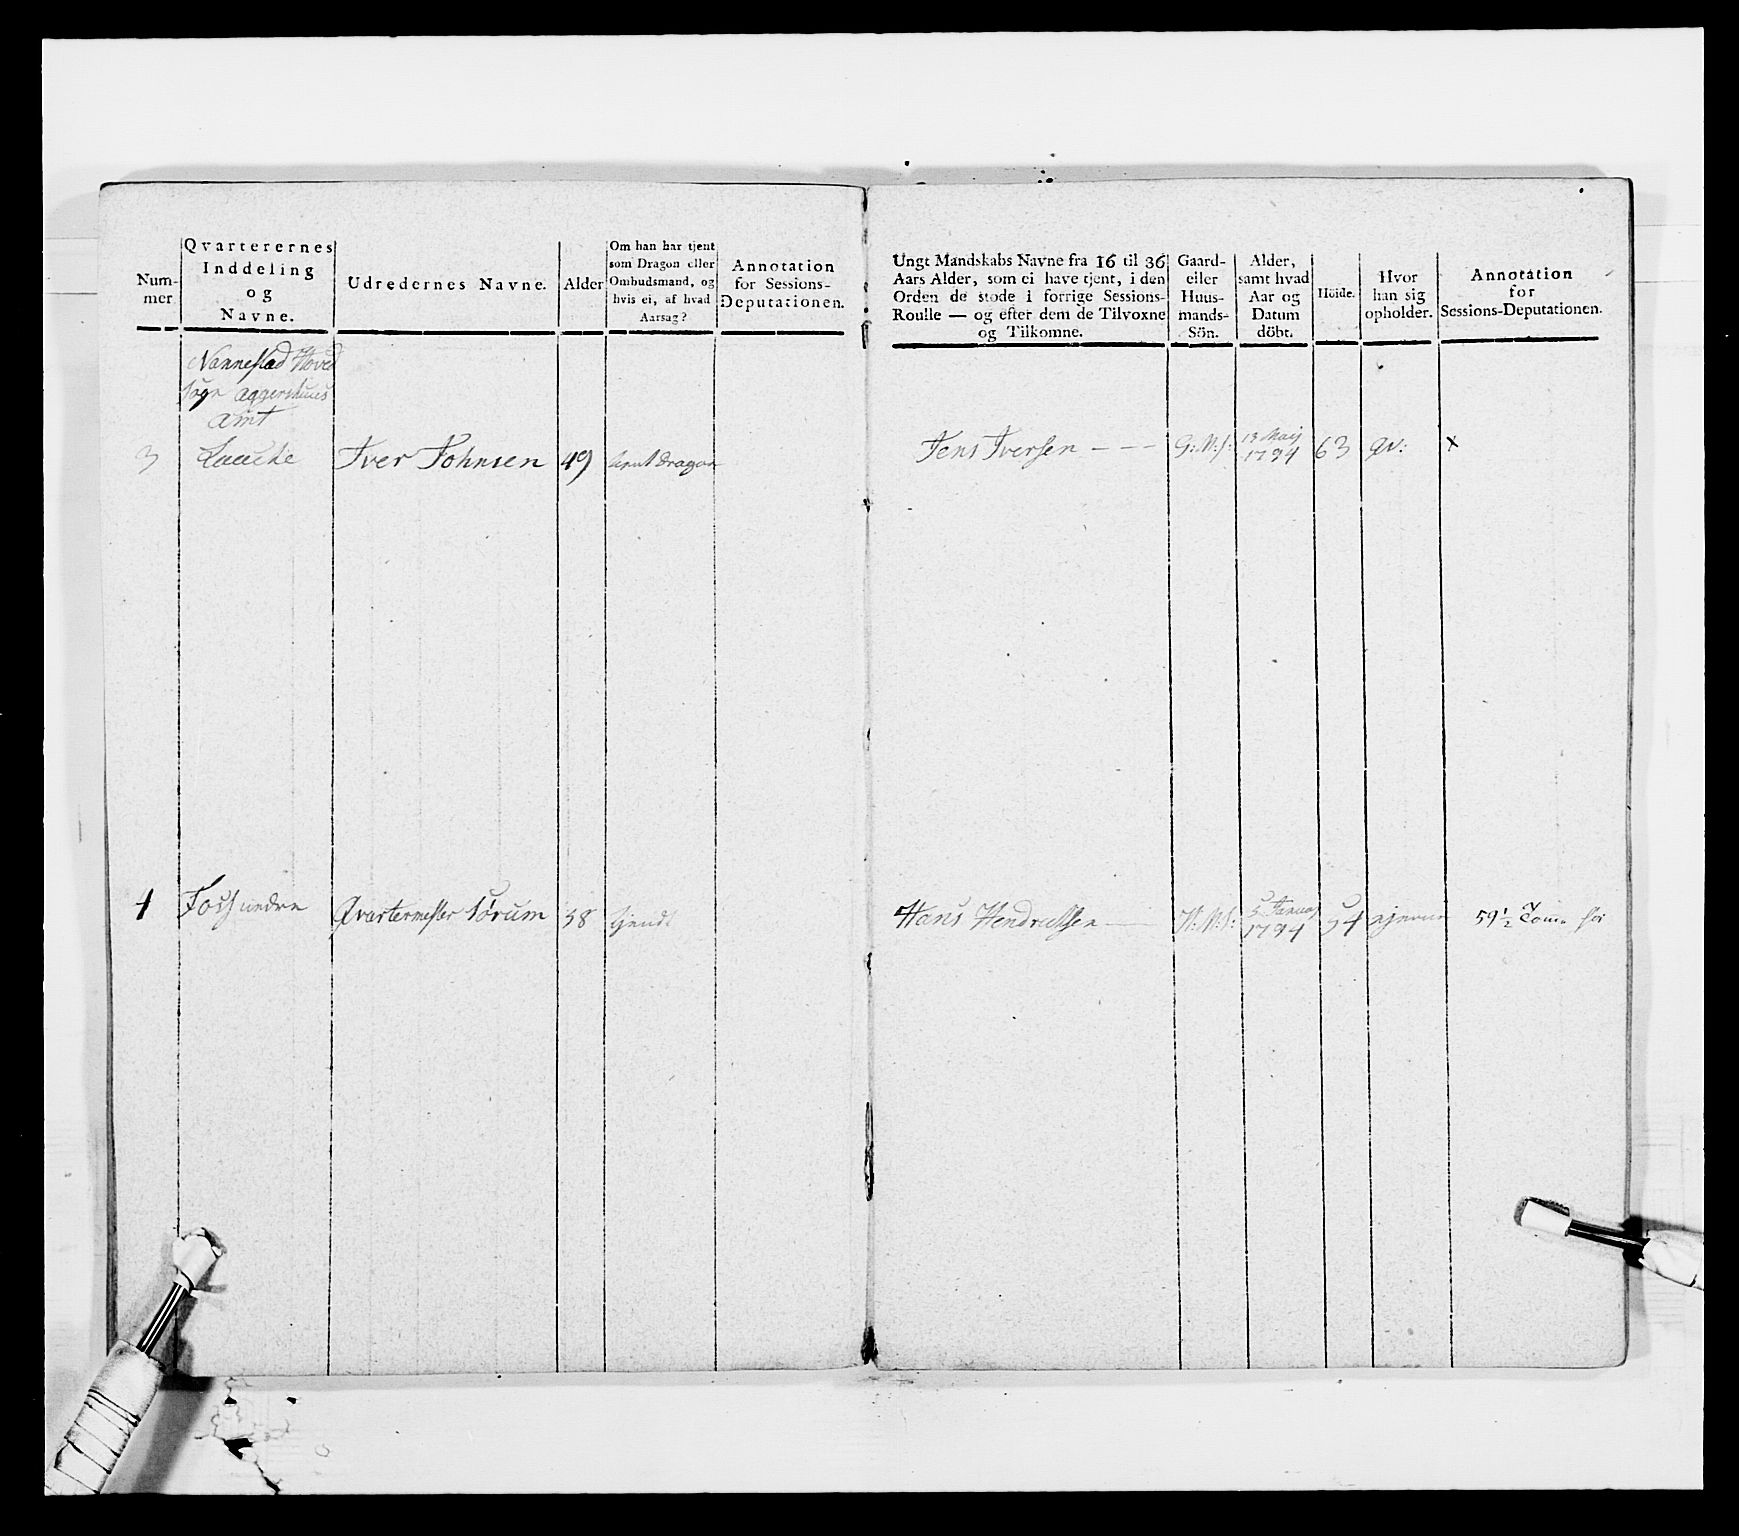 Num-
mer
Qvarterernes
Inddeling
og
Navne.
Udredernes Navne.
Alder
Om han har tjent
som Dragon eller
Ombudsmand, og
hvis ei, af hvad
Aarsag?
Annotation
for Sessions-
Deputationen.
Nannestad Hoved
Sogn Aggershuus
Amt
3
Iver Johnsen
49
dragon
4
Qvartermester Sørum
38
tjendt
Ungt Mandskabs Navne fra 16 til 36
Aars Alder, som ei have tjent, i den
Orden de stode i forrige Sessions-
Roulle — og efter dem de Tilvoxne
og Tilkomne.
Gaard-
eller
Huus-
mands-
Sön.
Alder,
samt hvad
Aar og
Datum
döbt.
Höide.
Hvor
han sig
opholder.
Annotation
for
Sessions-Deputationen.
Jens Iversen — — —
G: M: S:
13 Maij
1794
63
qv:
x
Hans Hendrichsen
H: M: S:
5 Januar
1794
54
59 1/2